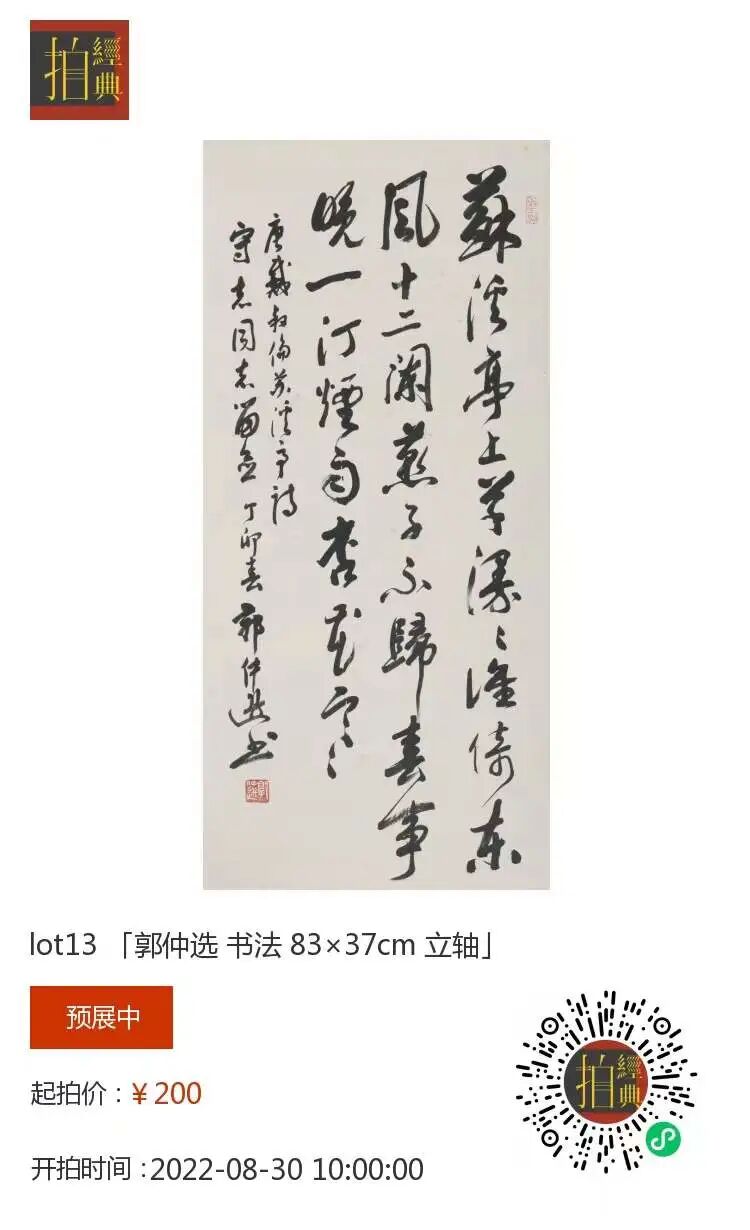 拍
經典
蘇溪亭上草漫〻誰倚東
風十二闌燕子不歸春事
晚一汀煙雨杏花寒〻
唐戴叔倫苏溪亭诗
守志同志留念 丁卯春 郭仲选书
lot13 「郭仲选 书法 83×37cm 立轴」
预展中
起拍价：￥200
开拍时间：2022-08-30 10:00:00
拍
經典